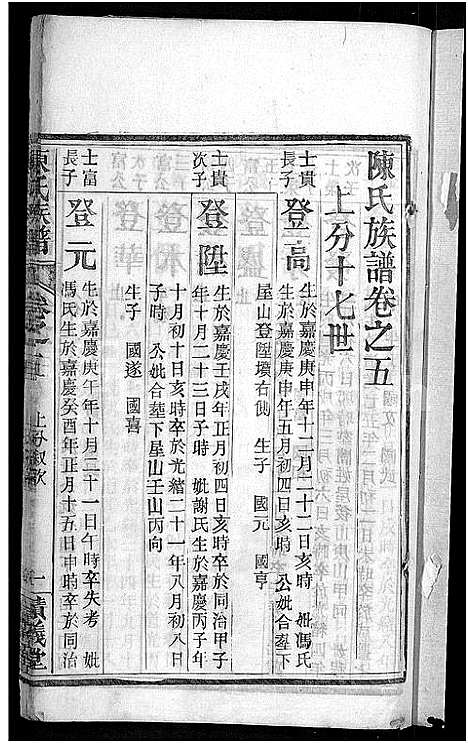 陳氏族譜卷之五
上分十七世
士貴長子
登高
生於嘉慶庚申年十二月二十二日亥時 妣馮氏
生於嘉慶庚申年五月初四日亥時 公妣合塟下
屋山登陞墳右側 生子 國元 國亨
士貴次子
登陞
生於嘉慶壬戌年正月初四日亥時卒於同治甲子
年十月二十三日子時 妣謝氏生於嘉慶丙子年
十月初十日亥時卒於光緒二十一年八月初八日
子時 公妣合塟下星山壬山丙向
生子 國遂 國喜
士富長子
登元
生於嘉慶庚午年十月二十一日午時卒失考 妣
馮氏生於嘉慶癸酉年正月十五日申時卒於同治
陳氏族譜
卷之五
上分叙歌
一
續義堂